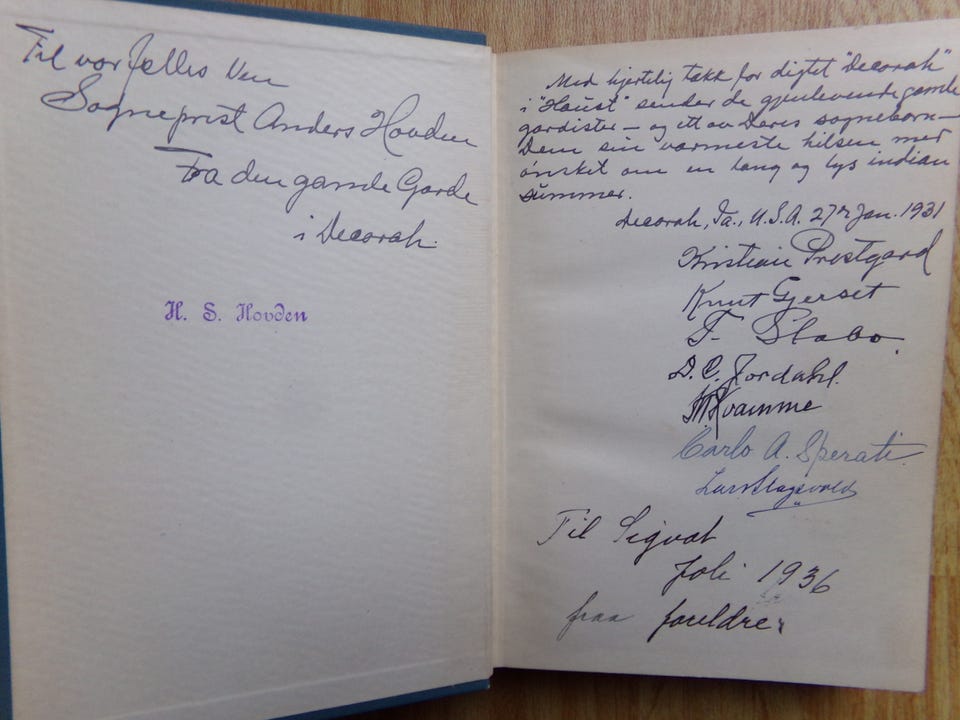 Til vor fælles Ven
Sogneprest Anders Hovden
Fra den gamle Garde
i Decorah.
H. S. Hovden
Med hjertelig takk for digtet "Decorah"
i "Haust" sender de gjenlevende gamle
gardister – og ett av Deres sognebarn –
Dem sin varmeste hilsen med
ønsket om en lang og lys indian
summer.
Decorah, Ia., U.S.A. 27de Jan. 1931
Kristian Prestgard
Knut Gjerset
T. Stabo.
D. C. Jordahl.
Kvamme
Carlo A. Sperati.
Til Sigvat
Joli 1936
fraa foreldre